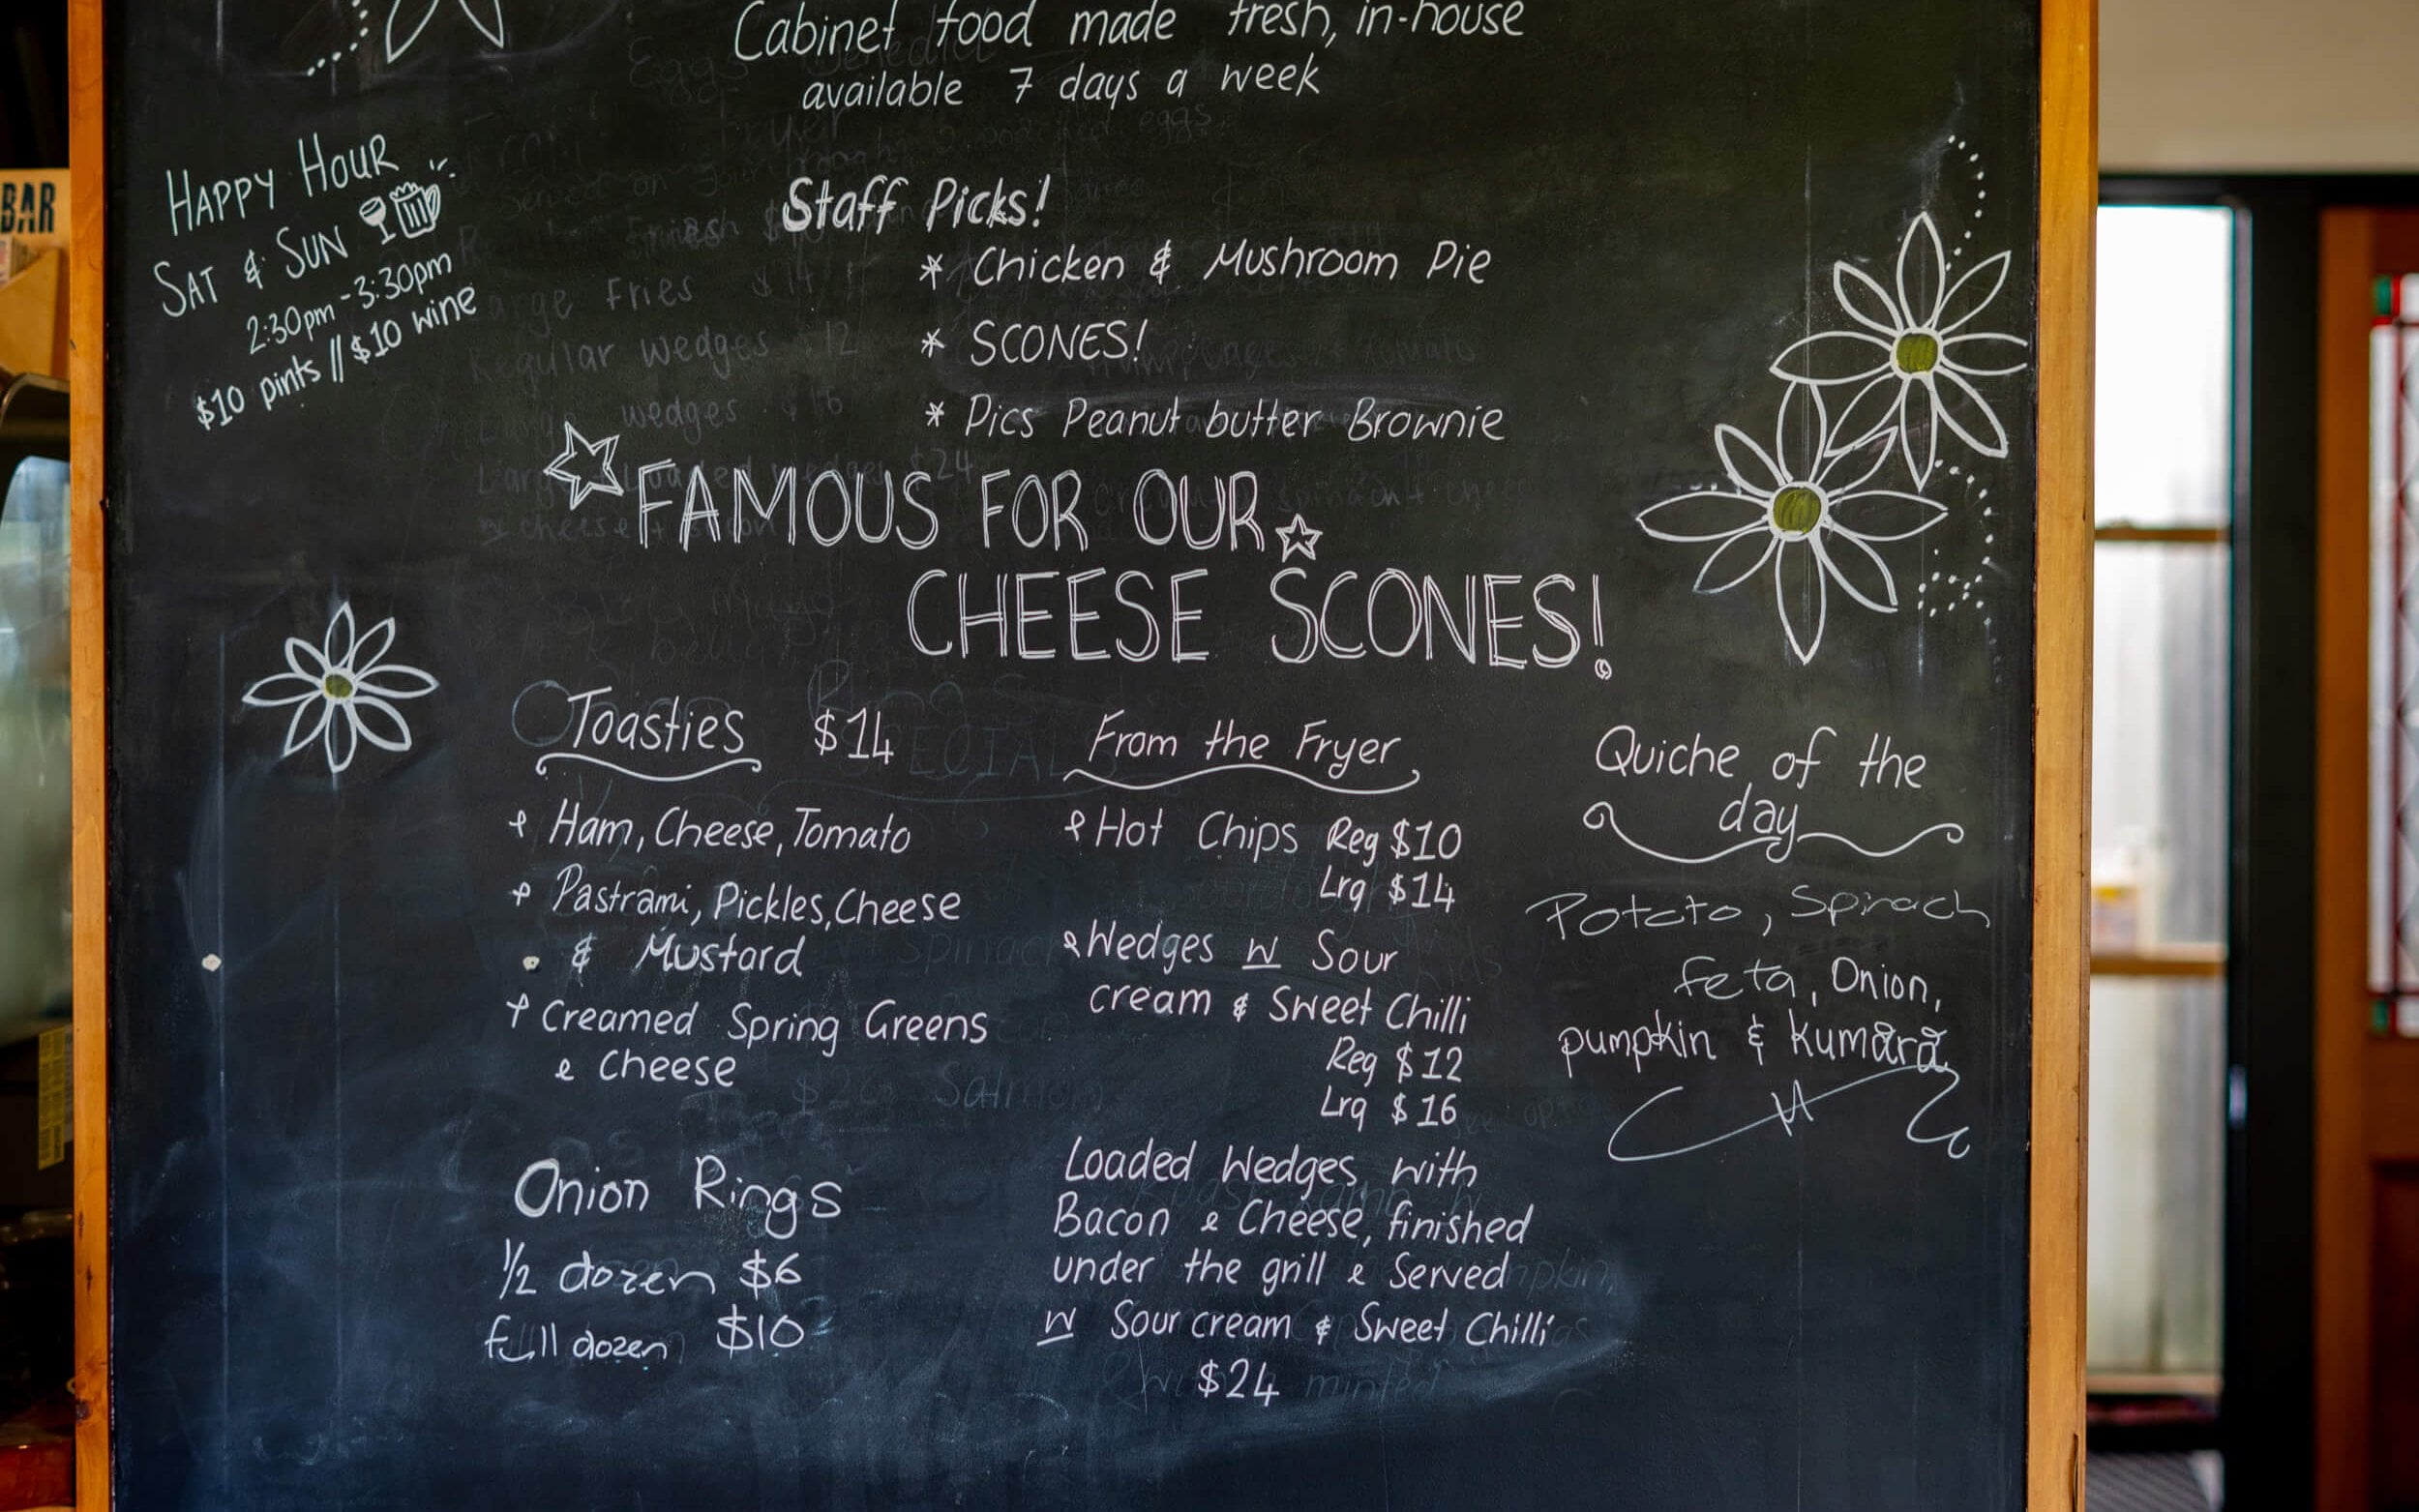 Cabinet food made fresh, in-house
available 7 days a week
BAR
HAPPY HOUR
SAT & SUN
2:30pm-3:30pm
$10 pints // $10 wine
Staff Picks!
* Chicken & Mushroom Pie
* SCONES!
* Pics Peanut butter Brownie
FAMOUS FOR OUR
CHEESE SCONES!
Toasties $14
Ham, Cheese, Tomato
Pastrami, Pickles, Cheese
& Mustard
Creamed Spring Greens
& Cheese
Onion Rings
1/2 dozen $6
full dozen $10
From the Fryer
Hot Chips Reg $10
Lrg $14
Wedges w Sour
cream & Sweet Chilli
Reg $12
Lrg $16
Loaded Wedges with
Bacon & Cheese, finished
under the grill & Served
w Sour cream & Sweet Chilli
$24
Quiche of the
day
Potato, Spinach
feta, Onion,
pumpkin & kumārā